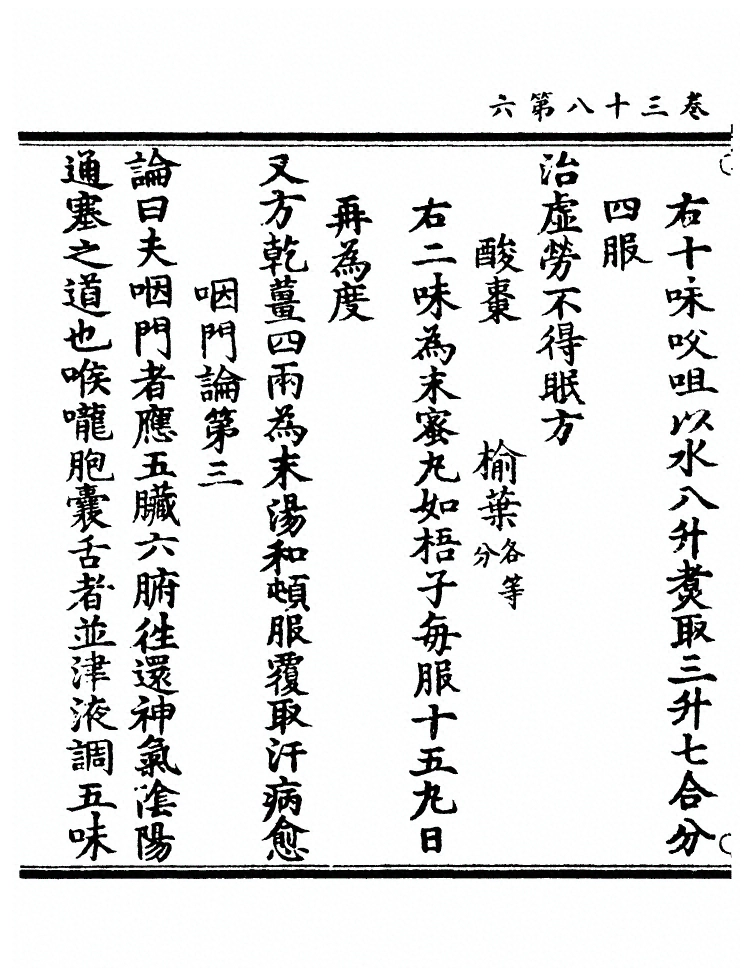 卷三十八第六
右十味㕮咀以水八升煑取三升七合分
四服
治虛勞不得眠方
酸棗　榆葉各等分
右二味為末蜜丸如梧子每服十五丸日
再為度
又方乾薑四兩為末湯和頓服覆取汗病愈
咽門論第三
論曰夫咽門者應五臟六腑徃還神氣陰陽
通塞之道也喉嚨胞囊舌者並津液調五味